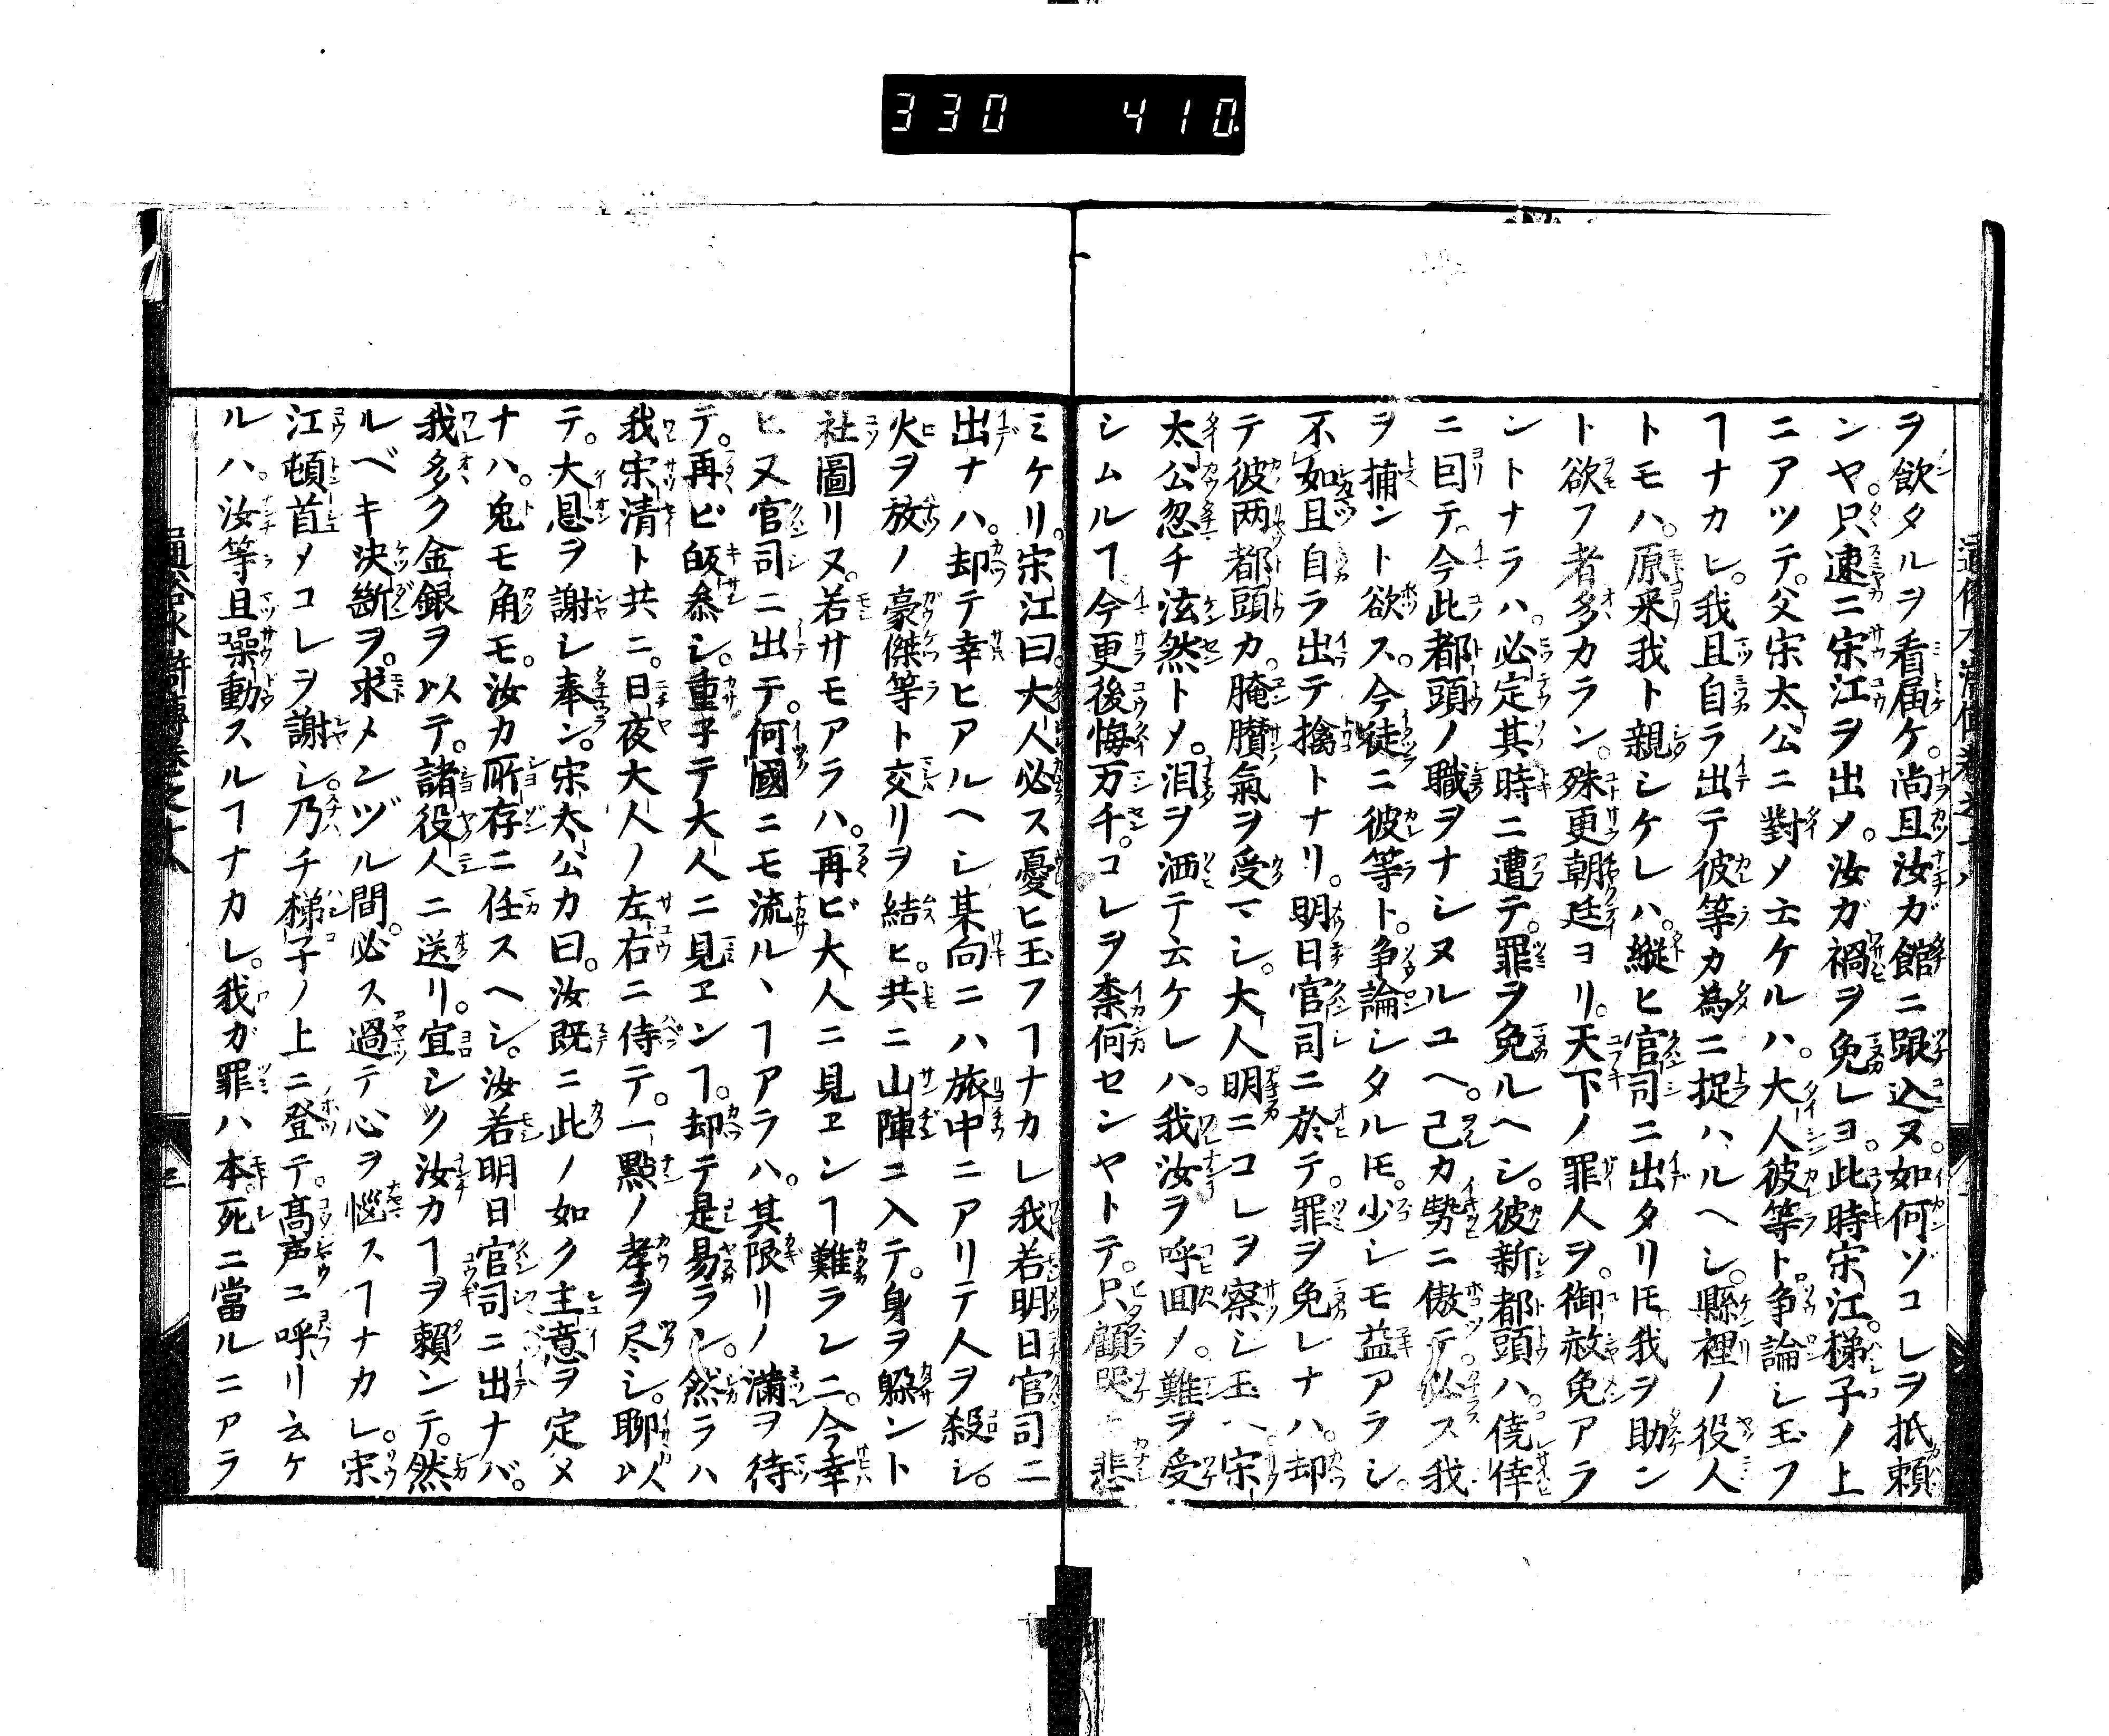 330 410
ヲ飲タルヲ看届ケ。尚且汝ガ館ニ跟込ヌ。如何ゾコレヲ抵頼
ンヤ。只速ニ宋江ヲ出メ。汝ガ禍ヲ免レヨ。此時宋江。梯子ノ上
ニアツテ。父宋太公ニ對メ云ケルハ。大人彼等ト。争論シ玉フ
ヿナカレ。我且自ラ出テ彼等カ為ニ捉ハルヘシ。縣裡ノ役人
トモハ。原来我ト親シケレハ。縦ヒ官司ニ出タリ𪜈。我ヲ助ン
ト欲フ者多カラン。殊更朝廷ヨリ。天下ノ罪人ヲ。御赦免アラ
ントナラハ。必定其時ニ遭テ。罪ヲ免ルヘシ。彼新都頭ハ。僥倖
ニ曰テ。今此都頭ノ職ヲナシヌルユヘ。己カ勢ニ傲テ。必ス我
ヲ捕ント欲ス。今徒ニ彼等ト。争論シタル𪜈。少シモ益アラシ。
不如且自ラ出テ擒トナリ。明日官司ニ於テ。罪ヲ免レナハ。却
テ彼两都頭カ。腌臢氣ヲ受マシ。大人明ニコレヲ察シ玉ヘ宋
太公忽チ泫然トメ。泪ヲ洒テ云ケレハ。我汝ヲ呼囬メ。難ヲ受
シムルヿ今更後悔万千。コレヲ柰何センヤトテ。只顧哭ニ悲
ミケリ。宋江曰。大人必ス憂ヒ玉フヿナカレ我若明日官司ニ
出ナハ。却テ幸ヒアルヘシ某向ニハ旅中ニアリテ人ヲ殺シ。
火ヲ放ノ豪傑等ト交リヲ結ヒ。共ニ山陣ニ入テ。身ヲ躱ント
社圖リヌ。若サモアラハ。再ビ大人ニ見ヱンヿ難ラレニ。今幸
ヒ又官司ニ出テ。何國ニモ流ルヽヿアラハ。其限リノ滿ヲ待
テ。再ビ皈叅シ。重子テ大人ニ見ヱンヿ。却テ是易ラン。然ラハ
我宋清ト共ニ。日夜大人ノ左右ニ侍テ。一點ノ孝ヲ尽シ。聊以
テ。大恩ヲ謝シ奉ン。宋太公カ曰。汝既ニ此ノ如ク主意ヲ定メ
ナハ。兔モ角モ。汝カ所存ニ任スヘシ。汝若明日官司ニ出ナバ。
我多ク金銀ヲ以テ。諸役人ニ送リ。宜シツ汝カヿヲ頼ンテ。然
ルベキ決斷ヲ。求メンヅル間。必ス過テ心ヲ惱スヿナカレ。宋
江頓首メコレヲ謝シ。乃チ梯子ノ上ニ登テ。髙声ニ呼リ云ケ
ルハ。汝等且噪動スルヿナカレ。我ガ罪ハ本死ニ當ルニアラ
三